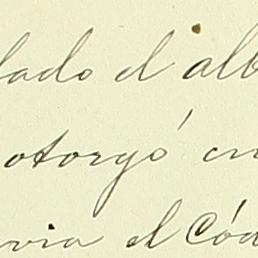 lado el alb
otorgó en
via el Cód